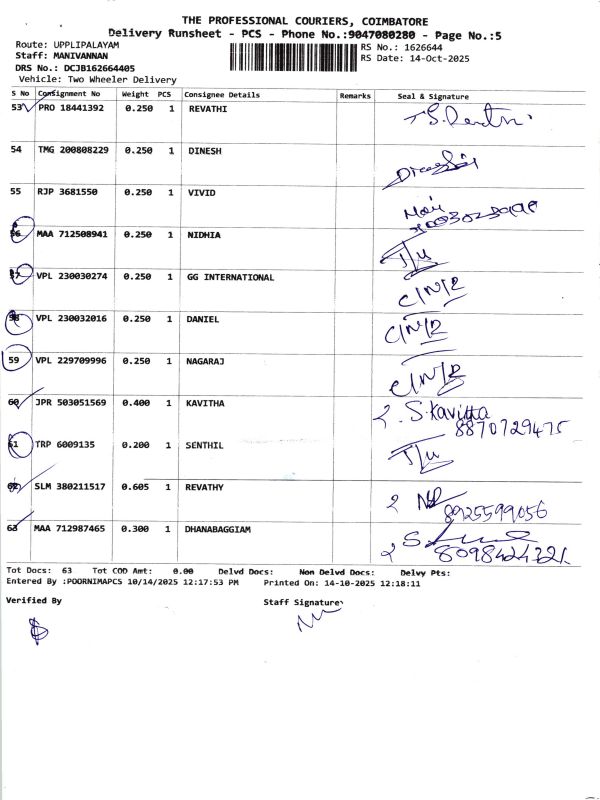 THE PROFESSIONAL COURIERS, COIMBATORE
Delivery Runsheet - PCS - Phone No.:9047080280 - Page No.:5
Route: UPPLIPALAYAM
Staff: MANIVANNAN
DRS No.: DCJB162664405
Vehicle: Two Wheeler Delivery
RS No.: 1626644
RS Date: 14-Oct-2025
S No Consignment No Weight PCS Consignee Details Remarks Seal & Signature
53 PRO 18441392 0.250 1 REVATHI
54 TMG 200808229 0.250 1 DINESH
55 RJP 3681550 0.250 1 VIVID
56 MAA 712508941 0.250 1 NIDHIA T/u
57 VPL 230030274 0.250 1 GG INTERNATIONAL C/N/R
58 VPL 230032016 0.250 1 DANIEL C/N/R
59 VPL 229709996 0.250 1 NAGARAJ C/N/R
60 JPR 503051569 0.400 1 KAVITHA S.Kavitha
8870729475
61 TRP 6009135 0.200 1 SENTHIL T/u
62 SLM 380211517 0.605 1 REVATHY
8925599056
63 MAA 712987465 0.300 1 DHANABAGGIAM
8098424321
Tot Docs: 63 Tot COD Amt: 0.00 Delvd Docs: Non Delvd Docs: Delvy Pts:
Entered By :POORNIMAPCS 10/14/2025 12:17:53 PM Printed On: 14-10-2025 12:18:11
Verified By Staff Signature